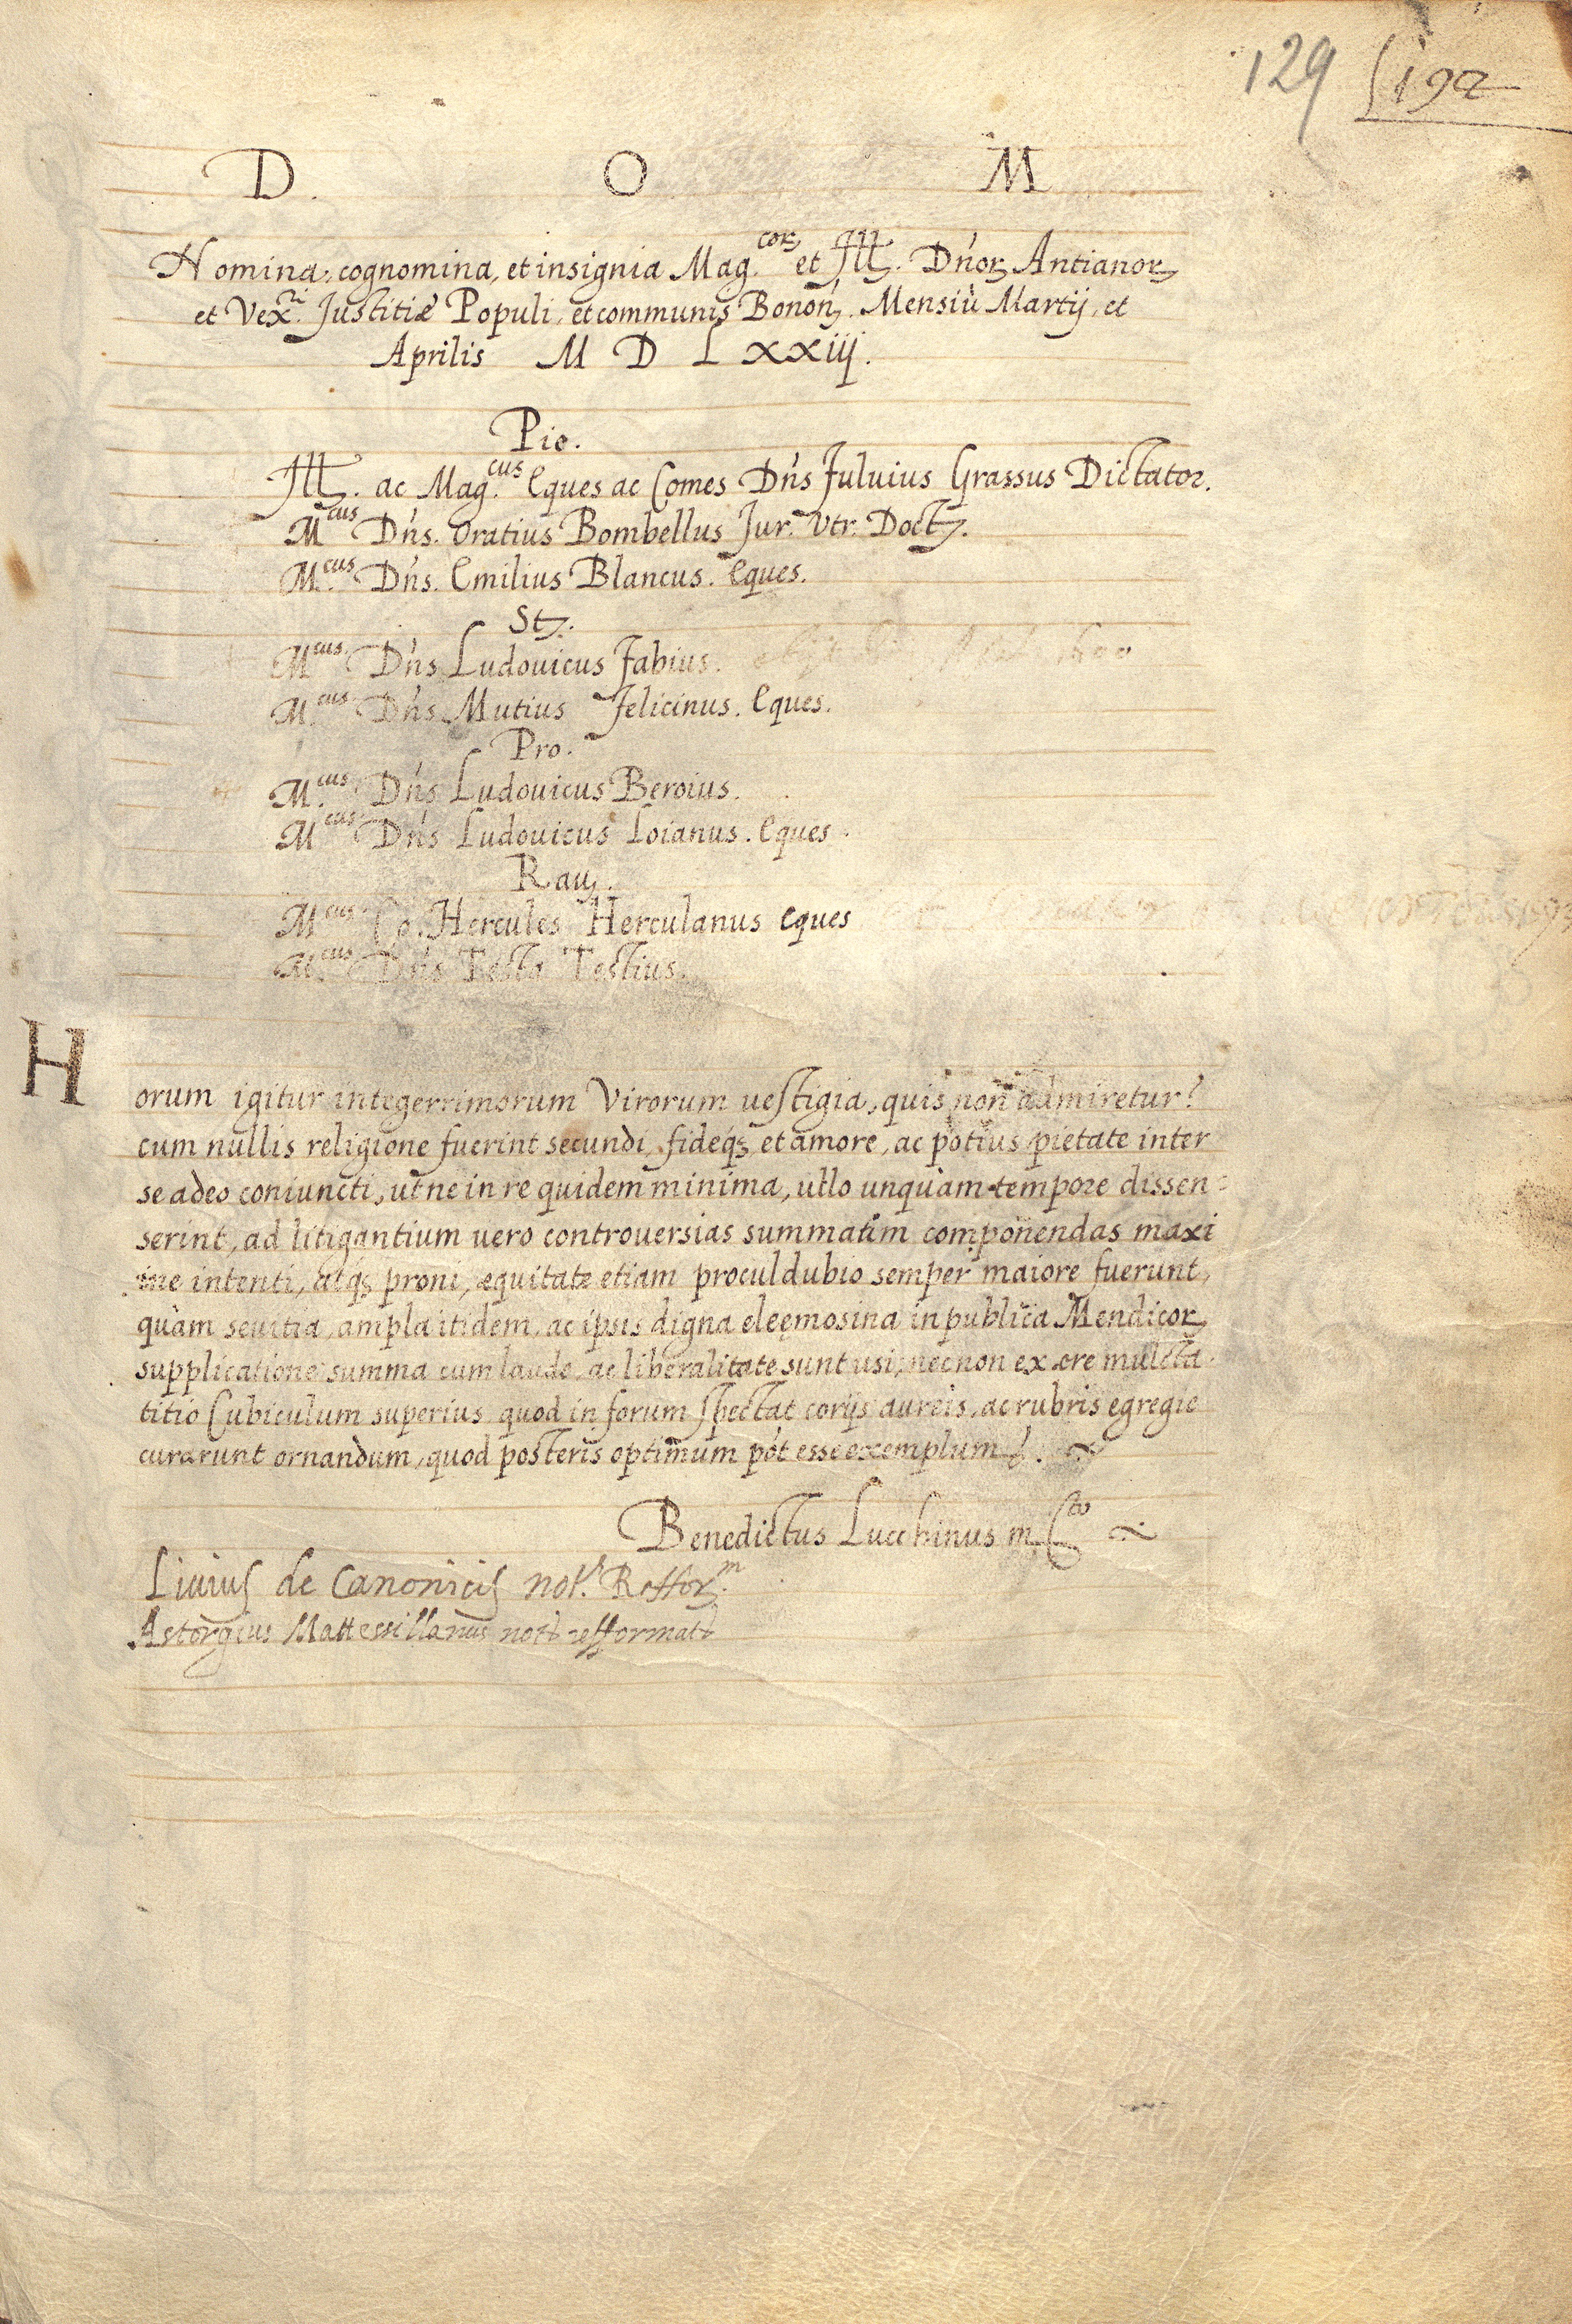 129 192
D. O M
Nomina, cognomina, et insignia Mag.cor et Ill. Dn̄or Antianor
et Vex.ri Justitiæ Populi, et communis Bonon̄. Mensiū Martij, et
Aprilis M D L xxiij.
Pie.
Ill. ac Mag.cus Eques ac Comes Dn̄s Fuluius Grassus Dictator.
M.cus Dn̄s. Oratius Bombellus Jur. Vtr. Doct.
M.cus Dn̄s. Emilius Blancus. Eques.
St.
M.cus Dn̄s Ludouicus Fabius.
M.cus Dn̄s Mutius Felicinus. Eques.
Pro.
M.cus Dn̄s Ludouicus Beroius.
M.cus Dn̄s Ludouicus Loianus. Eques.
Rau.
M.cus Co. Hercules Herculanus Eques
M.cus Dn̄s Testa Testius.
Horum igitur integerrimorum Virorum uestigia, quis non admiretur?
cum nullis religione fuerint secundi, fideq̄ꝫ et amore, ac potius pietate inter
se adeo coniuncti, ut ne in re quidem minima, ullo unquàm tempore dissen=
serint, ad litigantium uero controuersias summatim componendas maxi
me intenti, atq̄ꝫ proni, æquitate etiam proculdubio semper maiore fuerunt,
quàm seuitia, ampla itidem, ac ipsis digna eleęmosina in publica Mendicor
supplicatione summa cum laude, ac liberalitate sunt usi, necnon ex ære mulcta
titio Cubiculum superius quod in forum spectat corijs aureis, ac rubris egregie
curarunt ornandum, quod posteris optimum pót esse exemplum.
Benedictus Lucchinus m. C.to
Liuius de Canonicis not.s Reffor.m
Astorgius Mattessillanus not refformat